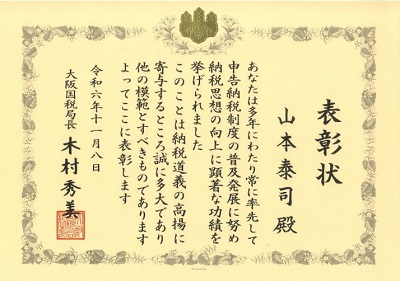 表彰状
山本泰司殿
あなたは多年にわたり常に率先して
申告納税制度の普及発展に努め
納税思想の向上に顕著な功績を
挙げられました
このことは納税道義の高揚に
寄与するところ誠に多大であり
他の模範とすべきものであります
よってここに表彰します
令和六年十一月八日
大阪国税局長 木村秀美